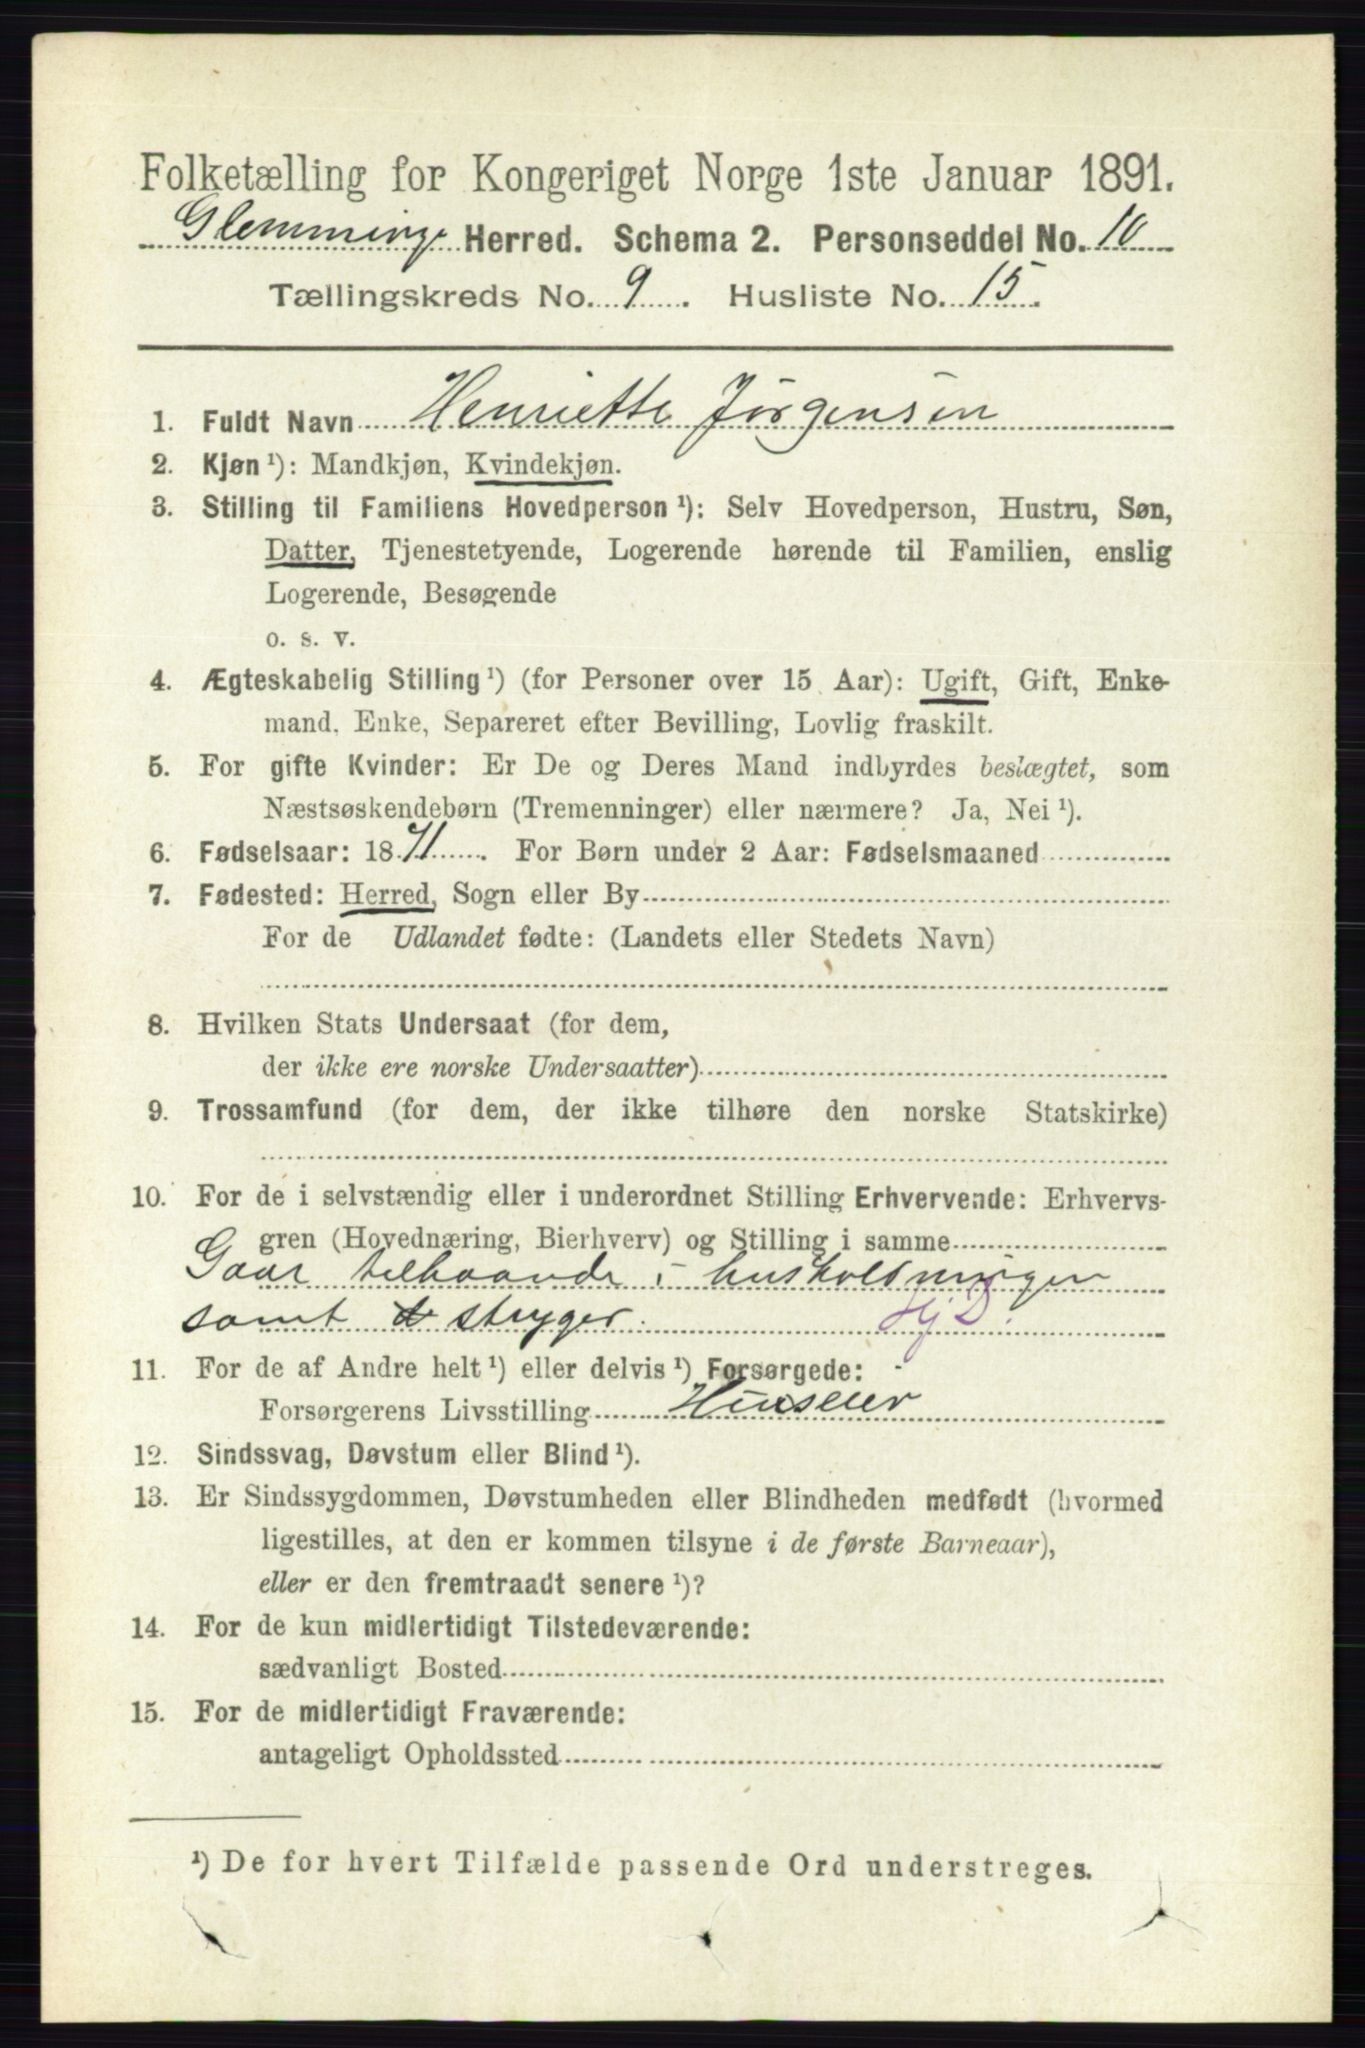 Folketælling for Kongeriget Norge 1ste Januar 1891.
Glemminge Herred. Schema 2. Personseddel No. 10
Tællingskreds No. 9. Husliste No. 15.
1. Fuldt Navn Henriette Jørgensen
2. Kjøn ¹): Mandkjøn, Kvindekjøn.
3. Stilling til Familiens Hovedperson ¹): Selv Hovedperson, Hustru, Søn,
Datter, Tjenestetyende, Logerende hørende til Familien, enslig
Logerende, Besøgende
o. s. v.
4. Ægteskabelig Stilling ¹) (for Personer over 15 Aar): Ugift, Gift, Enke-
mand, Enke, Separeret efter Bevilling, Lovlig fraskilt.
5. For gifte Kvinder: Er De og Deres Mand indbyrdes beslægtet, som
Næstsøskendebørn (Tremenninger) eller nærmere? Ja, Nei ¹).
6. Fødselsaar: 1871. For Børn under 2 Aar: Fødselsmaaned
7. Fødested: Herred, Sogn eller By
For de Udlandet fødte: (Landets eller Stedets Navn)
8. Hvilken Stats Undersaat (for dem,
der ikke ere norske Undersaatter)
9. Trossamfund (for dem, der ikke tilhøre den norske Statskirke)
10. For de i selvstændig eller i underordnet Stilling Erhvervende: Erhvervs-
gren (Hovednæring, Bierhverv) og Stilling i samme
Gaar tilhaande i husholdningen
samt stryger. Hj D.
11. For de af Andre helt ¹) eller delvis ¹) Forsørgede:
Forsørgerens Livsstilling Huseier
12. Sindssvag, Døvstum eller Blind ¹).
13. Er Sindssygdommen, Døvstumheden eller Blindheden medfødt (hvormed
ligestilles, at den er kommen tilsyne i de første Barneaar),
eller er den fremtraadt senere ¹)?
14. For de kun midlertidigt Tilstedeværende:
sædvanligt Bosted
15. For de midlertidigt Fraværende:
antageligt Opholdssted
¹) De for hvert Tilfælde passende Ord understreges.